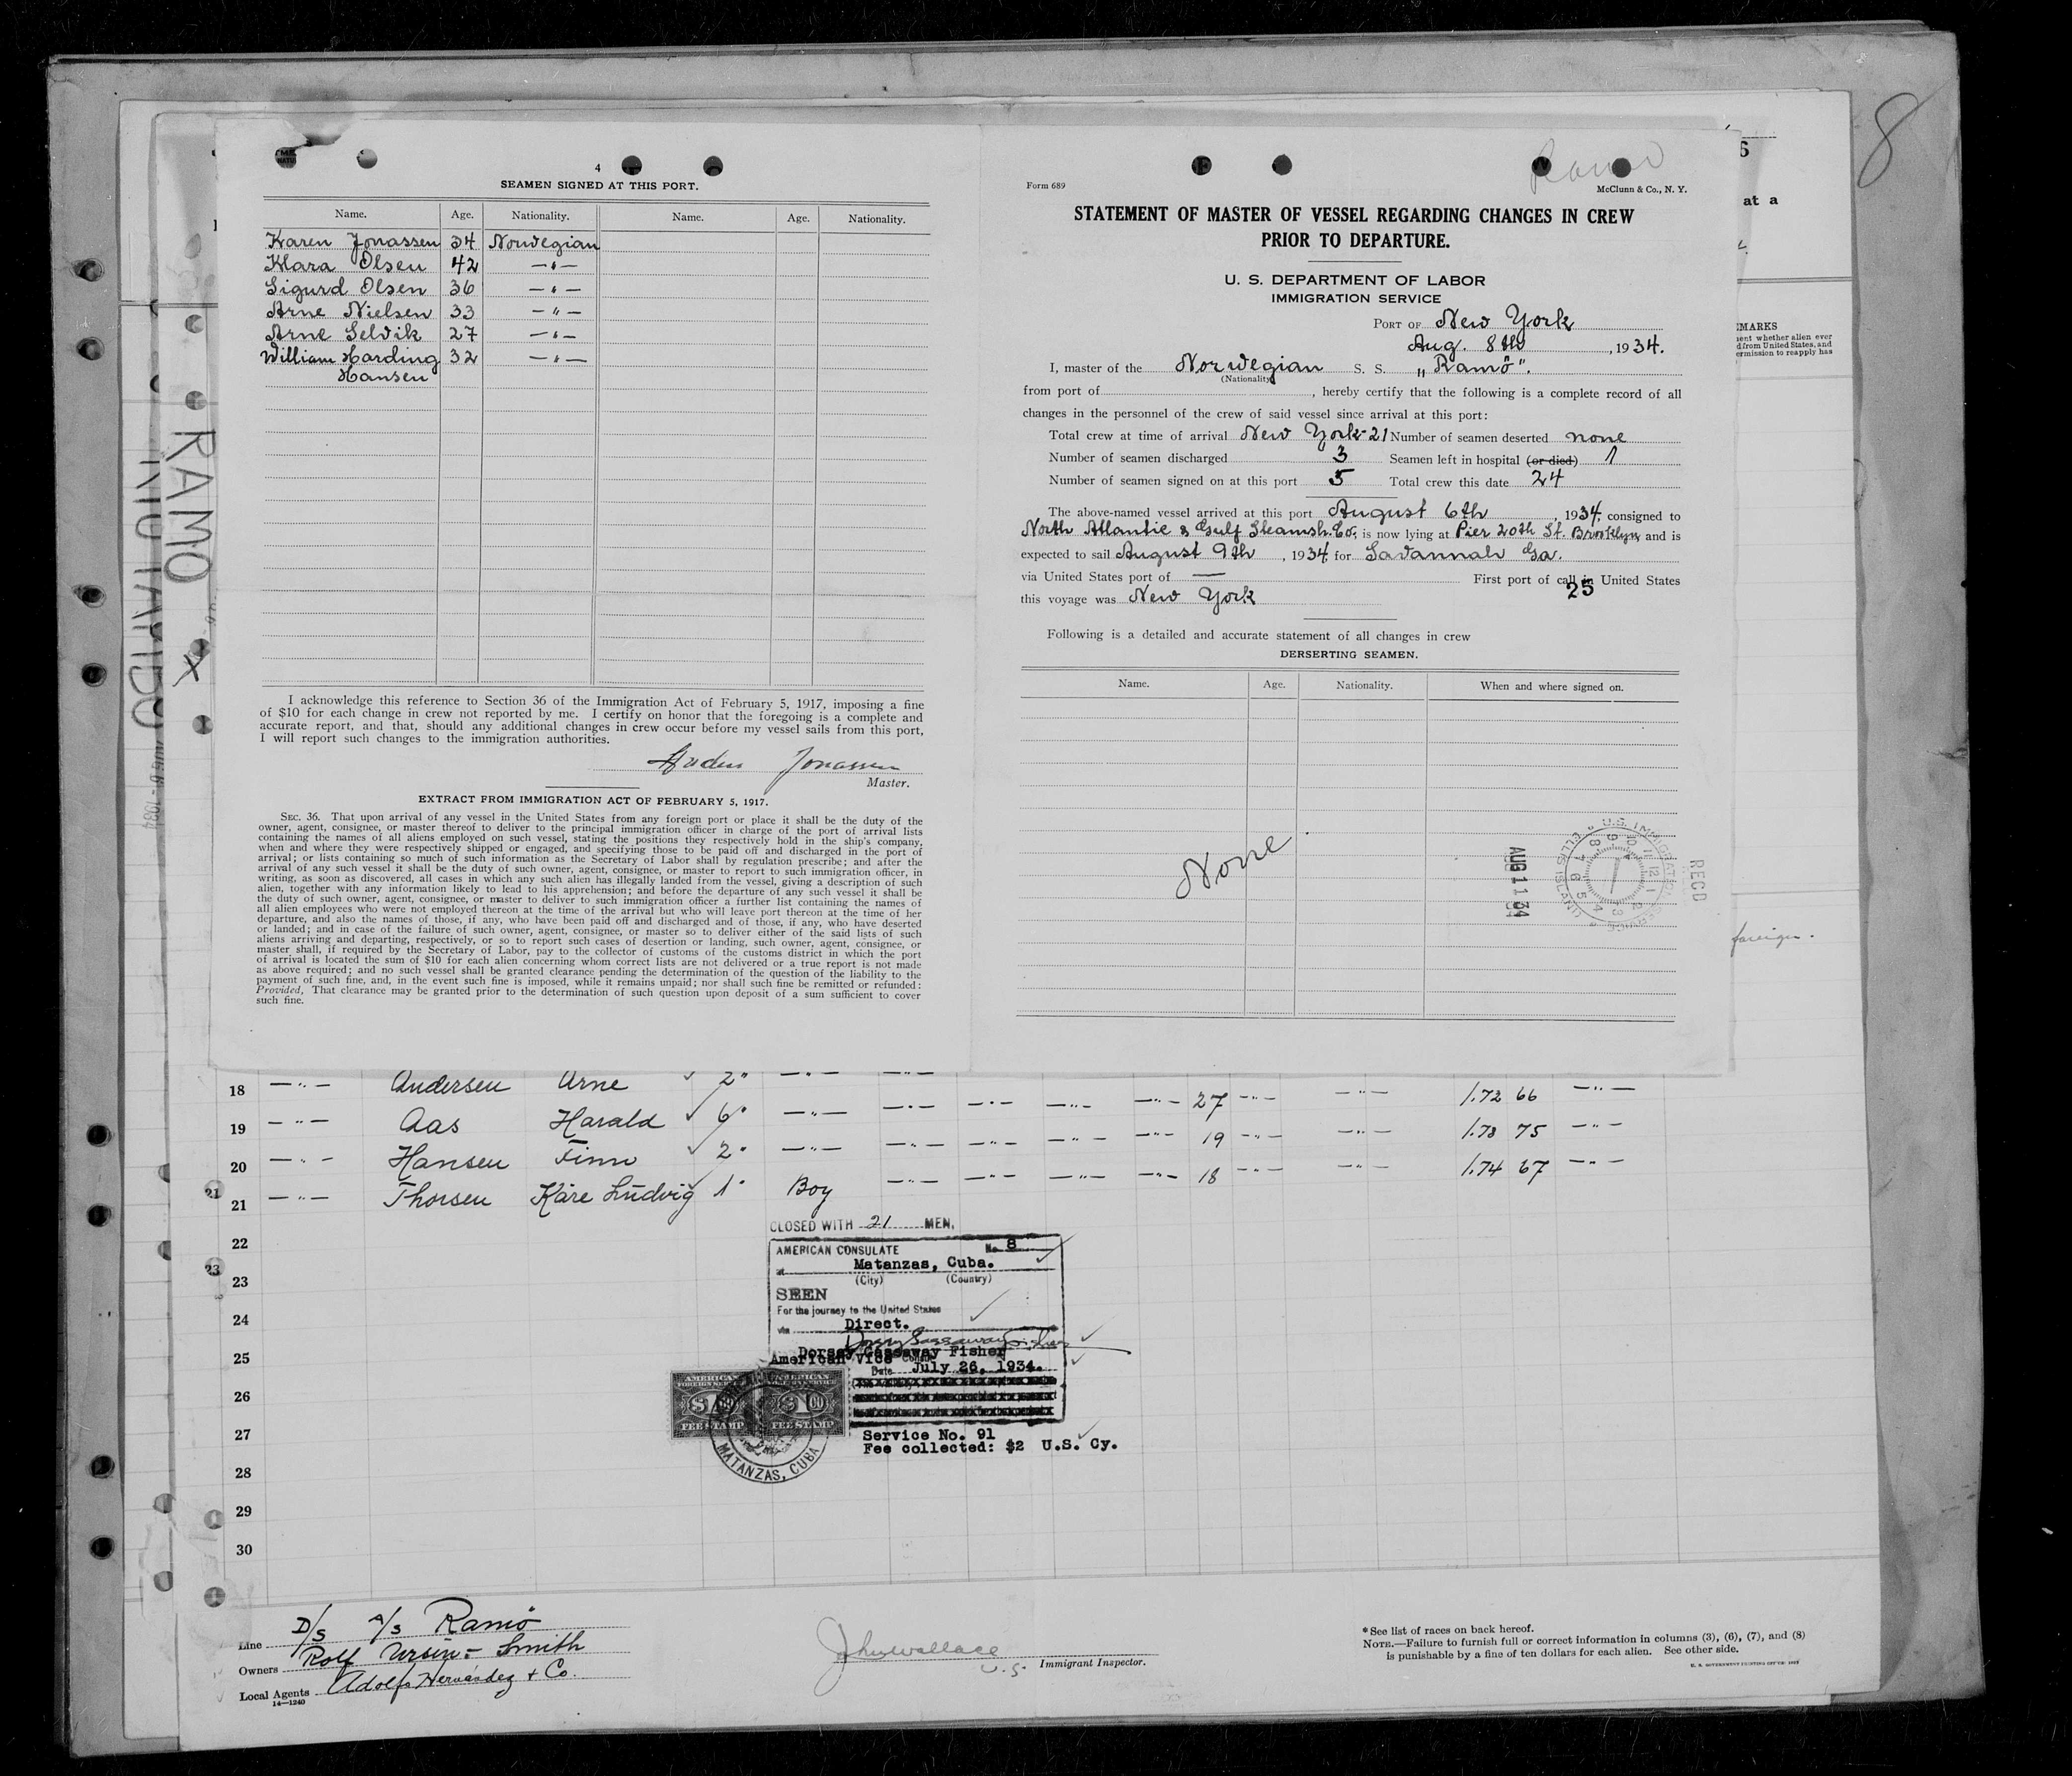 8
4
SEAMEN SIGNED AT THIS PORT.
Name. Age. Nationality. Name. Age. Nationality.
Karen Jonassen 34 Norwegian
Klara Olsen 42 —"—
Sigurd Olsen 36 —"—
Arne Nielsen 33 —"—
Arne Selvik 27 —"—
William Harding 32 —"—
Hansen
I acknowledge this reference to Section 36 of the Immigration Act of February 5, 1917, imposing a fine
of $10 for each change in crew not reported by me. I certify on honor that the foregoing is a complete and
accurate report, and that, should any additional changes in crew occur before my vessel sails from this port,
I will report such changes to the immigration authorities.
Jonassen
Master.
EXTRACT FROM IMMIGRATION ACT OF FEBRUARY 5, 1917.
SEC. 36. That upon arrival of any vessel in the United States from any foreign port or place it shall be the duty of the
owner, agent, consignee, or master thereof to deliver to the principal immigration officer in charge of the port of arrival lists
containing the names of all aliens employed on such vessel, stating the positions they respectively hold in the ship's company,
when and where they were respectively shipped or engaged, and specifying those to be paid off and discharged in the port of
arrival; or lists containing so much of such information as the Secretary of Labor shall by regulation prescribe; and after the
arrival of any such vessel it shall be the duty of such owner, agent, consignee, or master to report to such immigration officer, in
writing, as soon as discovered, all cases in which any such alien has illegally landed from the vessel, giving a description of such
alien, together with any information likely to lead to his apprehension; and before the departure of any such vessel it shall be
the duty of such owner, agent, consignee, or master to deliver to such immigration officer a further list containing the names of
all alien employees who were not employed thereon at the time of the arrival but who will leave port thereon at the time of her
departure, and also the names of those, if any, who have been paid off and discharged and of those, if any, who have deserted
or landed; and in case of the failure of such owner, agent, consignee, or master so to deliver either of the said lists of such
aliens arriving and departing, respectively, or so to report such cases of desertion or landing, such owner, agent, consignee, or
master shall, if required by the Secretary of Labor, pay to the collector of customs of the customs district in which the port
of arrival is located the sum of $10 for each alien concerning whom correct lists are not delivered or a true report is not made
as above required; and no such vessel shall be granted clearance pending the determination of the question of the liability to the
payment of such fine, and, in the event such fine is imposed, while it remains unpaid; nor shall such fine be remitted or refunded:
Provided, That clearance may be granted prior to the determination of such question upon deposit of a sum sufficient to cover
such fine.
Ramo
Form 689 McClunn & Co., N. Y.
STATEMENT OF MASTER OF VESSEL REGARDING CHANGES IN CREW
PRIOR TO DEPARTURE.
U. S. DEPARTMENT OF LABOR
IMMIGRATION SERVICE
PORT OF New York
Aug. 8th, 1934.
I, master of the Norwegian S. S. „Ramö".
(Nationality)
from port of, hereby certify that the following is a complete record of all
changes in the personnel of the crew of said vessel since arrival at this port:
Total crew at time of arrival New York-21 Number of seamen deserted none
Number of seamen discharged 3 Seamen left in hospital (or died) 1
Number of seamen signed on at this port 5 Total crew this date 24
The above-named vessel arrived at this port August 6th, 1934, consigned to
North Atlantic & Gulf Steamsh. Co., is now lying at Pier 20th St. Brooklyn and is
expected to sail August 9th, 1934 for Savannah Ga.
via United States port of — First port of call in United States
25
this voyage was New York
Following is a detailed and accurate statement of all changes in crew
DERSERTING SEAMEN.
Name. Age. Nationality. When and where signed on.
None
AUG 11 34
U.S. IMMIGRATION SERVICE ELLIS ISLAND
RECD
RAMO
X
AUG 6 - 1934
at a
foreign.
18 —"— Andersen Arne 2" —"— —"—
19 —"— Aas Harald 6" —"— —"— —"— —"— —"— 27 —"— —"— 1.72 66 —"—
20 —"— Hansen Finn 2" —"— —"— —"— —"— —"— 19 —"— —"— 1.78 75 —"—
21 —"— Thorsen Kåre Ludvig 1" Boy —"— —"— —"— —"— 18 —"— —"— 1.74 67 —"—
22
23
24
25
26
27
28
29
30
21
23
CLOSED WITH 21 MEN.
AMERICAN CONSULATE No. 8
at Matanzas, Cuba.
(City) (Country)
SEEN
For the journey to the United States
via Direct.
Dorsey Gassaway Fisher
American Vice Consul
Date July 26, 1934.
AMERICAN FOREIGN SERVICE $1.00 FEE STAMP
AMERICAN FOREIGN SERVICE $1.00 FEE STAMP
MATANZAS, CUBA
Service No. 91
Fee collected: $2 U.S. Cy.
Line D/S A/S Ramö
Owners Rolf Ursin-Smith
Local Agents Adolfo Hernández & Co.
14—1240
Jhnwallace
U.S. Immigrant Inspector.
*See list of races on back hereof.
NOTE.—Failure to furnish full or correct information in columns (3), (6), (7), and (8)
is punishable by a fine of ten dollars for each alien. See other side.